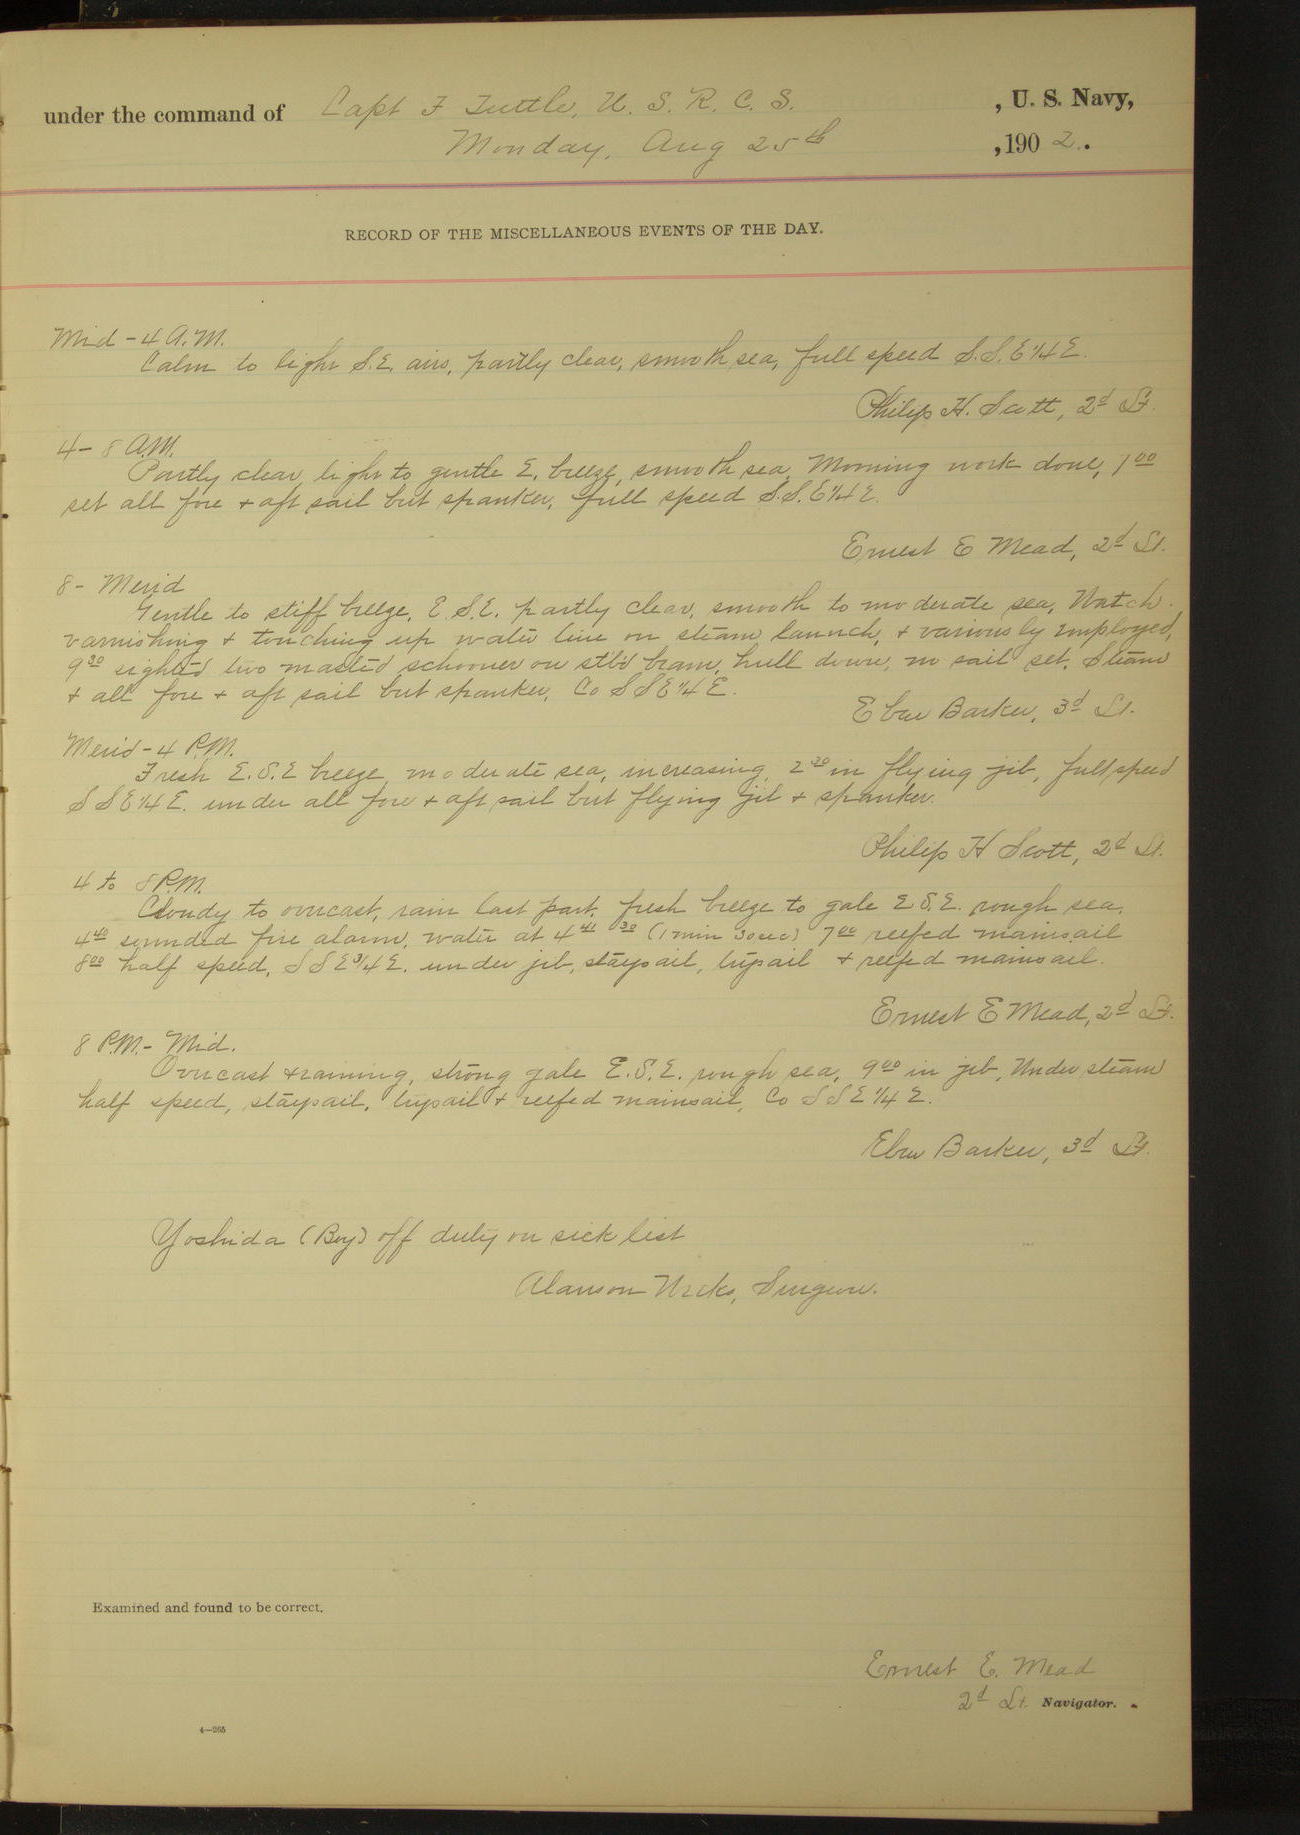 under the command of Capt F Tuttle, U. S. R. C. S. , U. S. Navy,
Monday, Aug 25th , 190 2 .
RECORD OF THE MISCELLANEOUS EVENTS OF THE DAY.
Mid - 4 A.M.
Calm to light S.E. airs, partly clear, smooth sea, full speed S.S.E 1/4 E.
Philip H. Scott, 2d Lt.
4 - 8 A.M.
Partly clear, light to gentle E. breeze, smooth sea, Morning work done, 7 00
set all fore & aft sail but spanker, full speed S.S.E 1/4 E.
Ernest E Mead, 2d Lt.
8 - Merid
Gentle to stiff breeze, E.S.E. partly clear, smooth to moderate sea, Watch
varnishing & touching up water line on steam launch, & variously employed,
9 30 sighted two masted schooner on stb'd beam, hull down, no sail set. Steam
& all fore & aft sail but spanker, Co S S E 1/4 E.
Eben Barker, 3d Lt.
Merid - 4 P.M.
Fresh E.S.E breeze, moderate sea, increasing, 2 30 in flying jib, full speed
S S E 1/4 E. under all fore & aft sail but flying jib & spanker.
Philip H Scott, 2d Lt.
4 to 8 P.M.
Cloudy to overcast, rain last part, fresh breeze to gale E S.E. rough sea.
4 40 sounded fire alarm, water at 4 41 30 (1 min 30 sec) 7 00 reefed mainsail
8 00 half speed, S S E 3/4 E. under jib, staysail, trysail & reefed mainsail.
Ernest E Mead, 2d Lt.
8 P.M. - Mid.
Overcast & raining, strong gale E.S.E. rough sea, 9 00 in jib, Under steam
half speed, staysail, trysail & reefed mainsail, Co S S E 1/4 E.
Eben Barker, 3d Lt.
Yoshida (Boy) off duty on sick list
Alanson Weeks, Surgeon.
Examined and found to be correct.
Ernest E. Mead
2d Lt. Navigator.
4—265